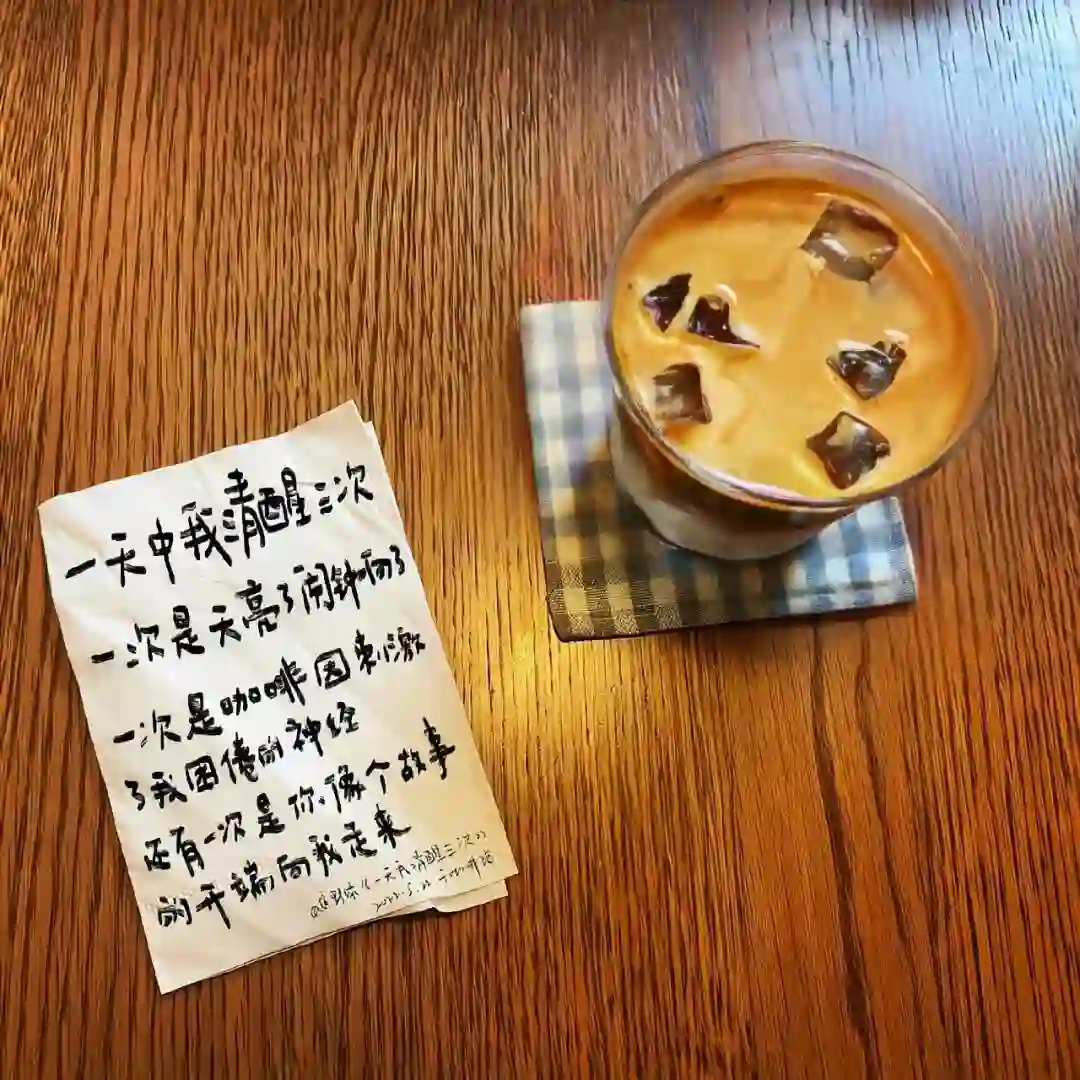 一天中我清醒三次
一次是天亮了闹钟响了
一次是咖啡因刺激
了我困倦的神经
还有一次是你.像个故事
的开端向我走来
《一天我清醒三次》
2022.5.22